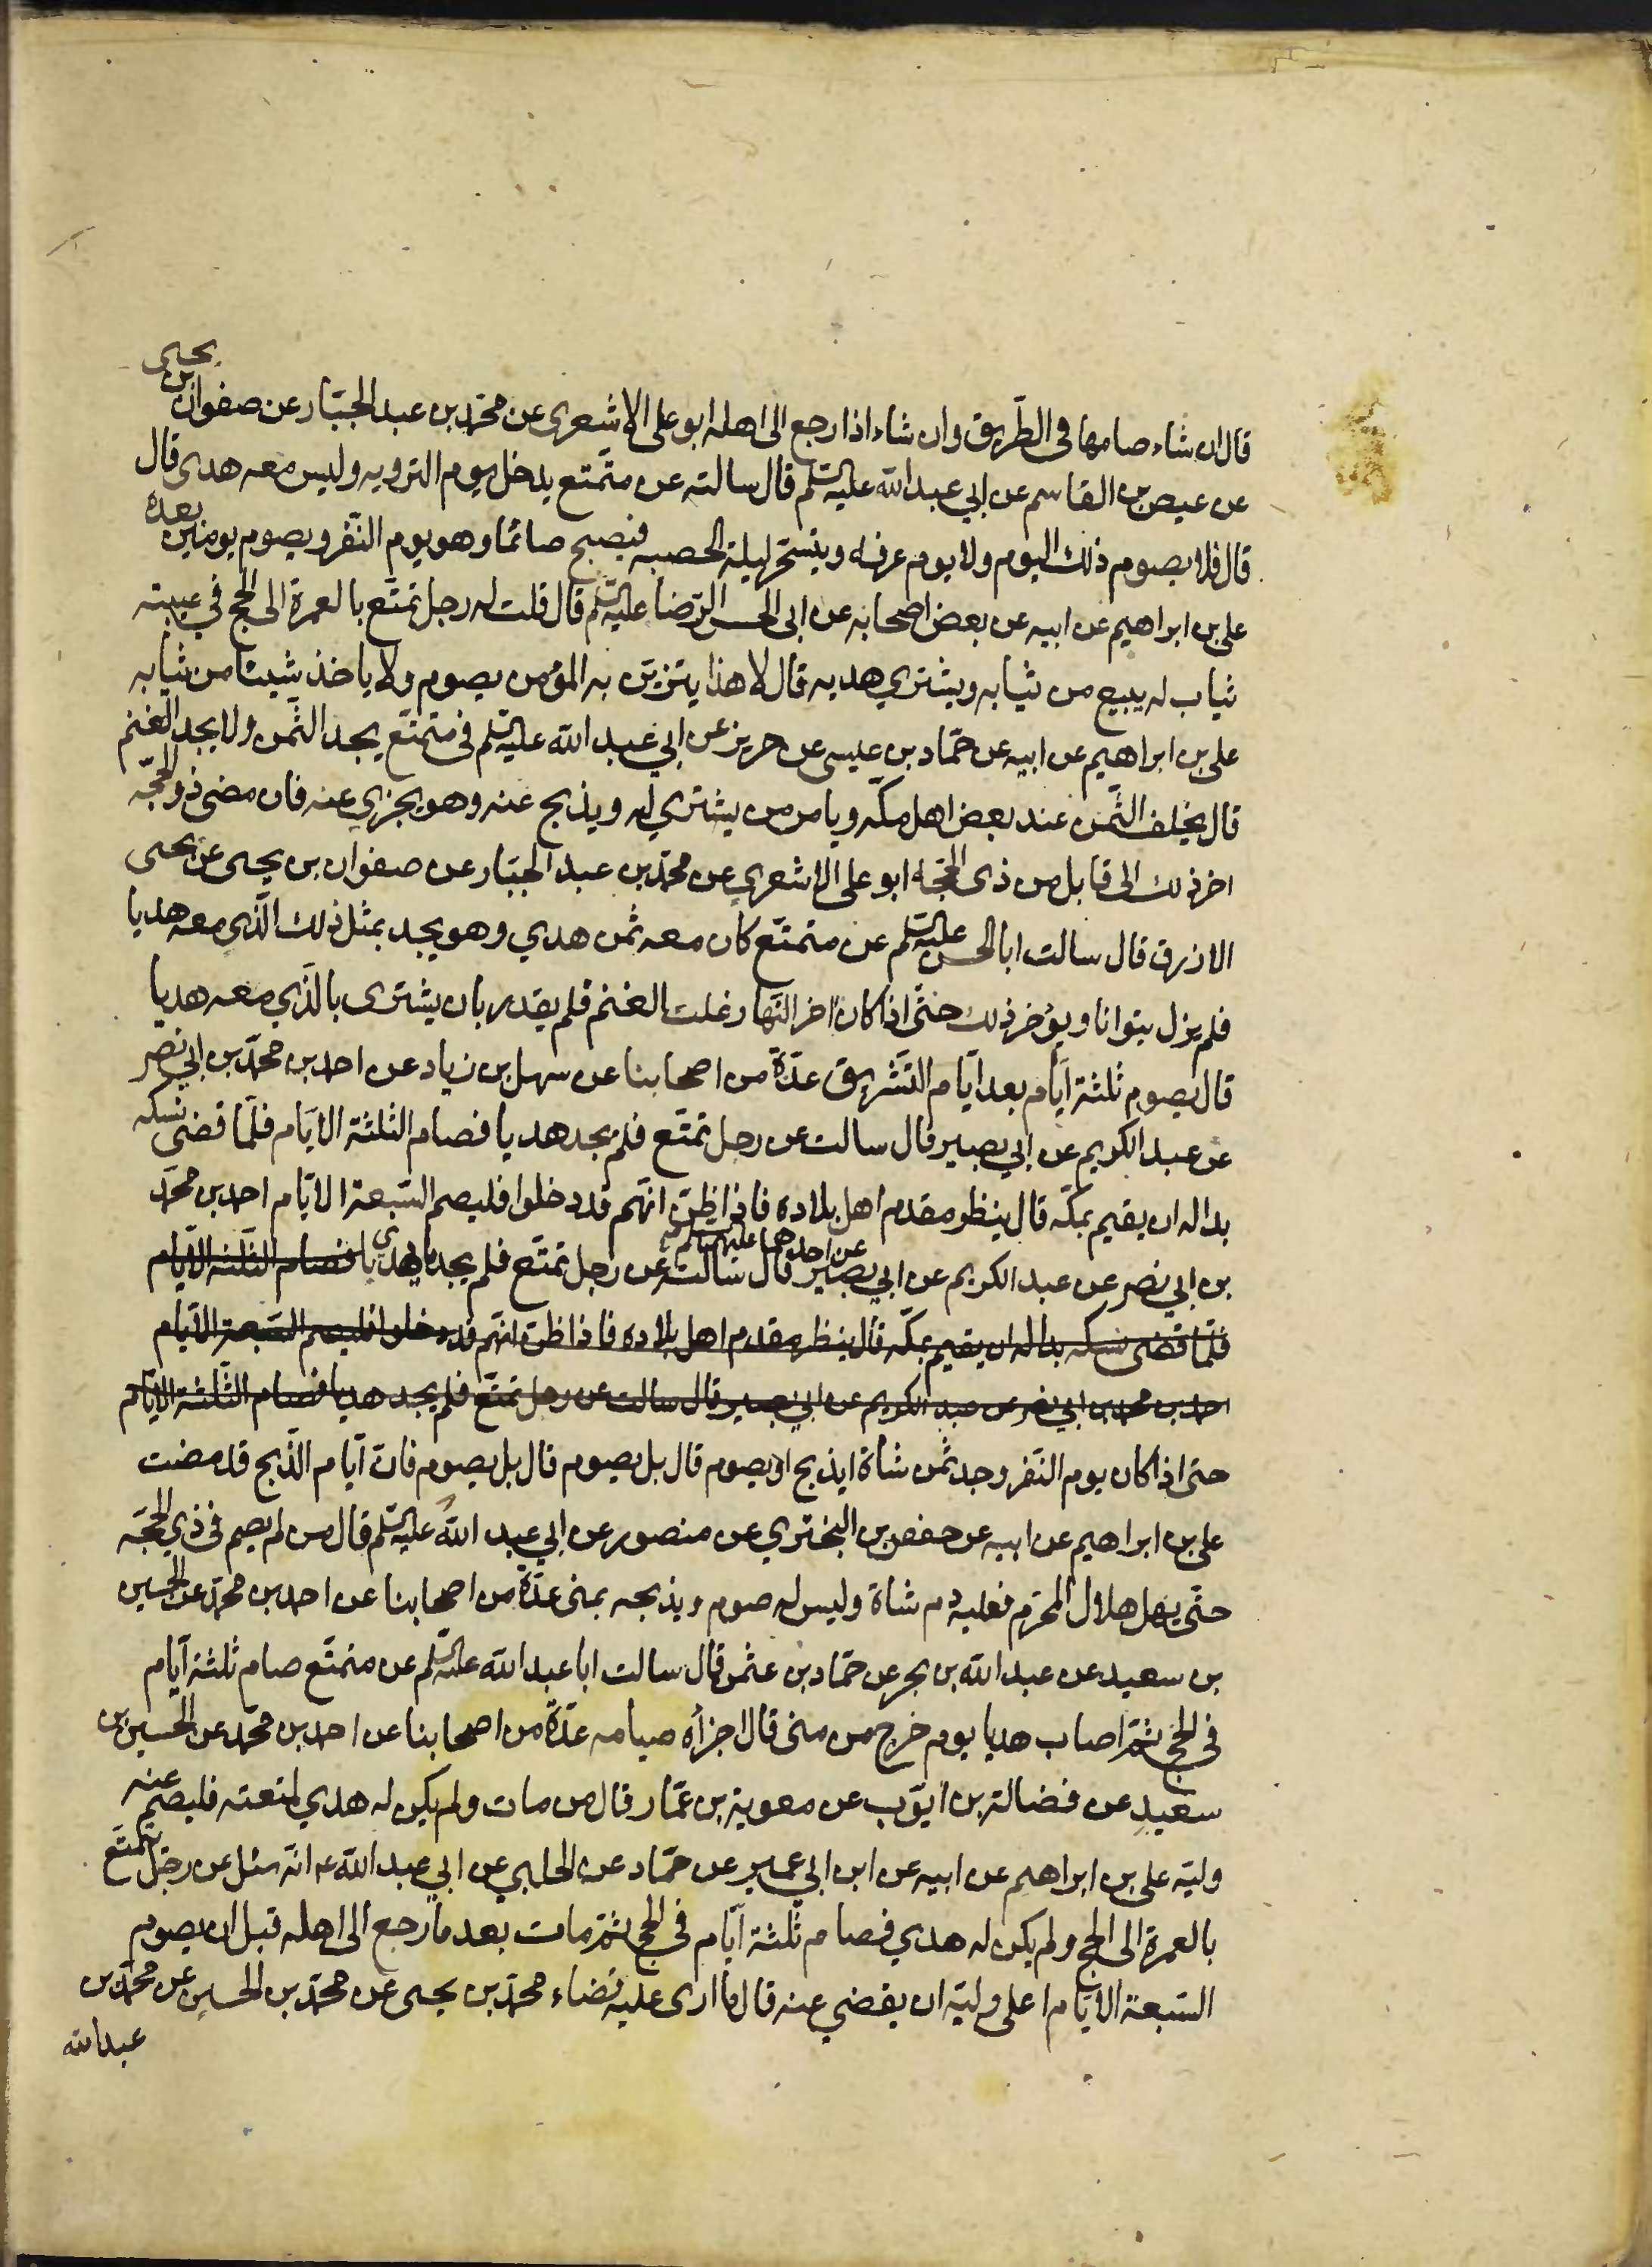 قال ان شاء صامها في الطّريق وان شاء اذا رجع الى اهله ابو على الاشعرى عن محمّد بن عبد الجبّار عن صفوان بن يحيى
عن عيص بن القاسم عن ابي عبد الله عليه السّلم قال سالته عن متمّتع يدخل يوم الترويه وليس معه هدى قال
قال فلا يصوم ذلك اليوم ولا يوم عرفه ويتسحّر ليلة الحصبه فيصبح صائما وهو يوم النّفر ويصوم يومين بعده
على بن ابراهيم عن ابيه عن بعض اصحابه عن ابى الحسن الرّضا عليه السّلم قال قلت له رجل تمتّع بالعمرة الى الحج في عيبته
ثياب له يبيع من ثيابه ويشتري هديه قال لا هذا يتزيّن به المؤمن يصوم ولا ياخذ شيئا من ثيابه
على بن ابراهيم عن ابيه عن حمّاد بن عليسى عن حريز عن ابي عبد الله عليه السّلم في متمتّع يجد الثّمن ولا يجد الغنم
قال يخلف الثّمن عند بعض اهل مكّه ويامر من يشتري له ويذبح عنه وهو يجزي عنه فان مضى ذو الحجّه
اخر ذلك الى قابل من ذى الحجّه ابو على الاشعري عن محمّد بن عبد الجبّار عن صفوان بن يحيى عن يحيى
الازرق قال سالت ابا الحسن عليه السّلم عن متمتّع كان معه ثمن هدي وهو يجد بمثل ذلك الّذى معه هديا
فلم يزل يتوانا ويؤخر ذلك حتّى اذا كان اخر النّهار غلت الغنم فلم يقدر بان يشترى بالّذي معه هديا
قال يصوم ثلثة ايّام بعد ايّام التّشريق عدّة من اصحابنا عن سهل بن زياد عن احمد بن محمّد بن ابي نصر
عن عبد الكريم عن ابي بصير قال سالت عن رجل تمتّع فلم يجد هديا فصام الثلثة الايّام فلمّا قضى نسكه
بدا له ان يقيم بمكّه قال ينظر مقدم اهل بلاده فاذا ظنّ انّهم قد دخلوا فليصم السّبعة الايّام احمد بن محمّد
بن ابي نصر عن عبد الكريم عن ابي بصير عن احدهما عليهما السلم قال سالته عن رجل تمتّع فلم يجد ما يهدى هديا فصام الثّلثة الايّام
فلمّا قضى نسكه بدا له ان يقيم بمكّه قال ينظر مقدم اهل بلاده فاذا ظنّ انّهم قد دخلوا فليصم السّبعة الايّام
احمد بن محمد بن ابي نصر عن عبد الكريم عن ابي بصير قال سالت عن رجل تمتّع فلم يجد هديا فصام الثّلثة الايّام
حتى اذا كان يوم النّفر وجد ثمن شاة ايذبح او يصوم قال بل يصوم قال بل يصوم فان ايّام الذّبح قد مضت
على بن ابراهيم عن ابيه عن حفص بن البختري عن منصور عن ابي عبد الله عليه السّلم قال من لم يصم في ذي الحجّه
حتّى يهل هلال المحرّم فعليه دم شاة وليس له صوم ويذبحه بمنى عدّة من اصحابنا عن احمد بن محمّد عن الحسين
بن سعيد عن عبد الله بن بحر عن حمّاد بن عثمن قال سالت ابا عبد الله عليه السّلم عن متمتّع صام ثلثة ايّام
في الحجّ ثمّ اصاب هديا يوم خرج من منى قال اجزأه صيامه عدّة من اصحابنا عن احمد بن محمّد عن الحسين بن
سعيد عن فضالة بن ايّوب عن معوية بن عمّار قال من مات ولم يكن له هدي لمتعته فليصم عنه
وليّه على بن ابراهيم عن ابيه عن ابن ابي عمير عن حمّاد عن الحلبي عن ابي عبد الله ع انّه سئل عن رجل تمتّع
بالعمرة الى الحج ولم يكن له هدي فصام ثلثة ايّام في الحج ثمّ مات بعد ما رجع الى اهله قبل ان يصوم
السّبعة الايّام ا على وليّه ان يقضي عنه قال ما ارى عليه قضاء محمّد بن يحيى عن محمّد بن الحسين عن محمّد بن
عبد الله